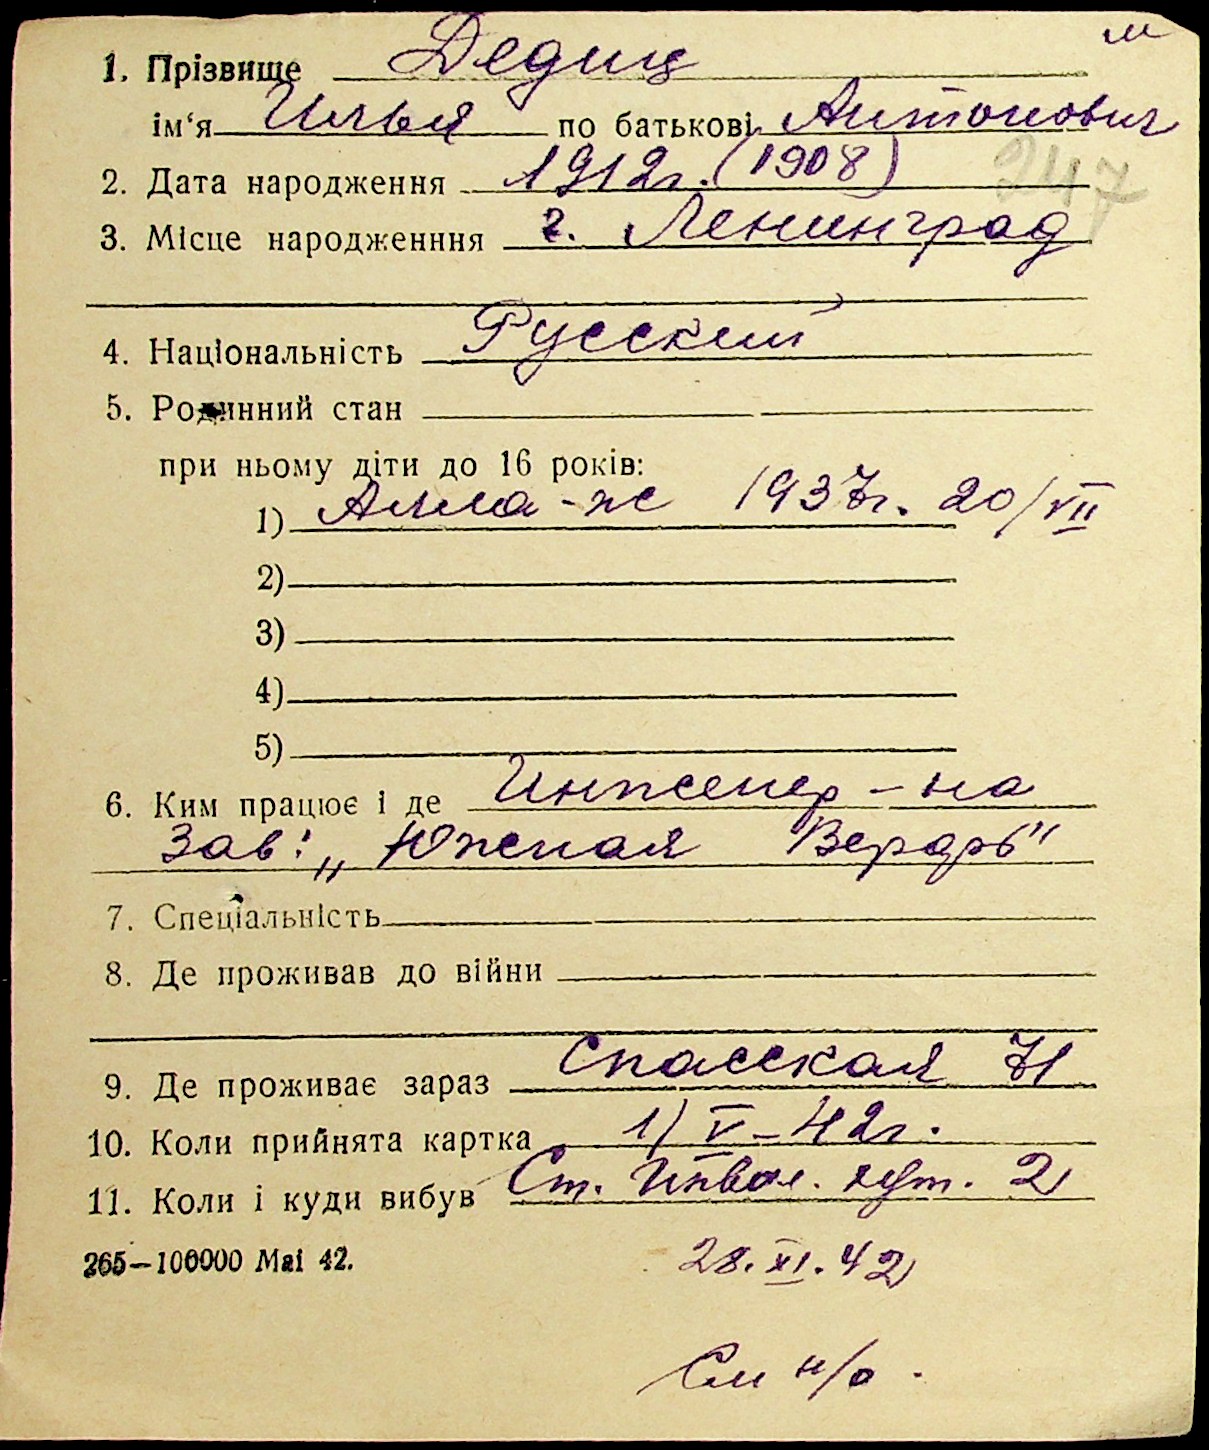 м
1. Прізвище Дедищ
ім‘я Илья по батькові Антонович
2. Дата народження 1912г. (1908)
247
3. Місце народженння г. Ленинград
4. Національність Русский
5. Родинний стан
при ньому діти до 16 років:
1) Алла - ж 1937г. 20/VII
2)
3)
4)
5)
6. Ким працює і де Инженер - на
Зав: „Южная Верфь"
7. Спеціальність
8. Де проживав до війни
9. Де проживає зараз Спасская 71
10. Коли прийнята картка 1/V - 42г.
11. Коли і куди вибув Ст. Инвал. хут. 2
265—100000 Маі 42.
28.XI.42
См н/о.